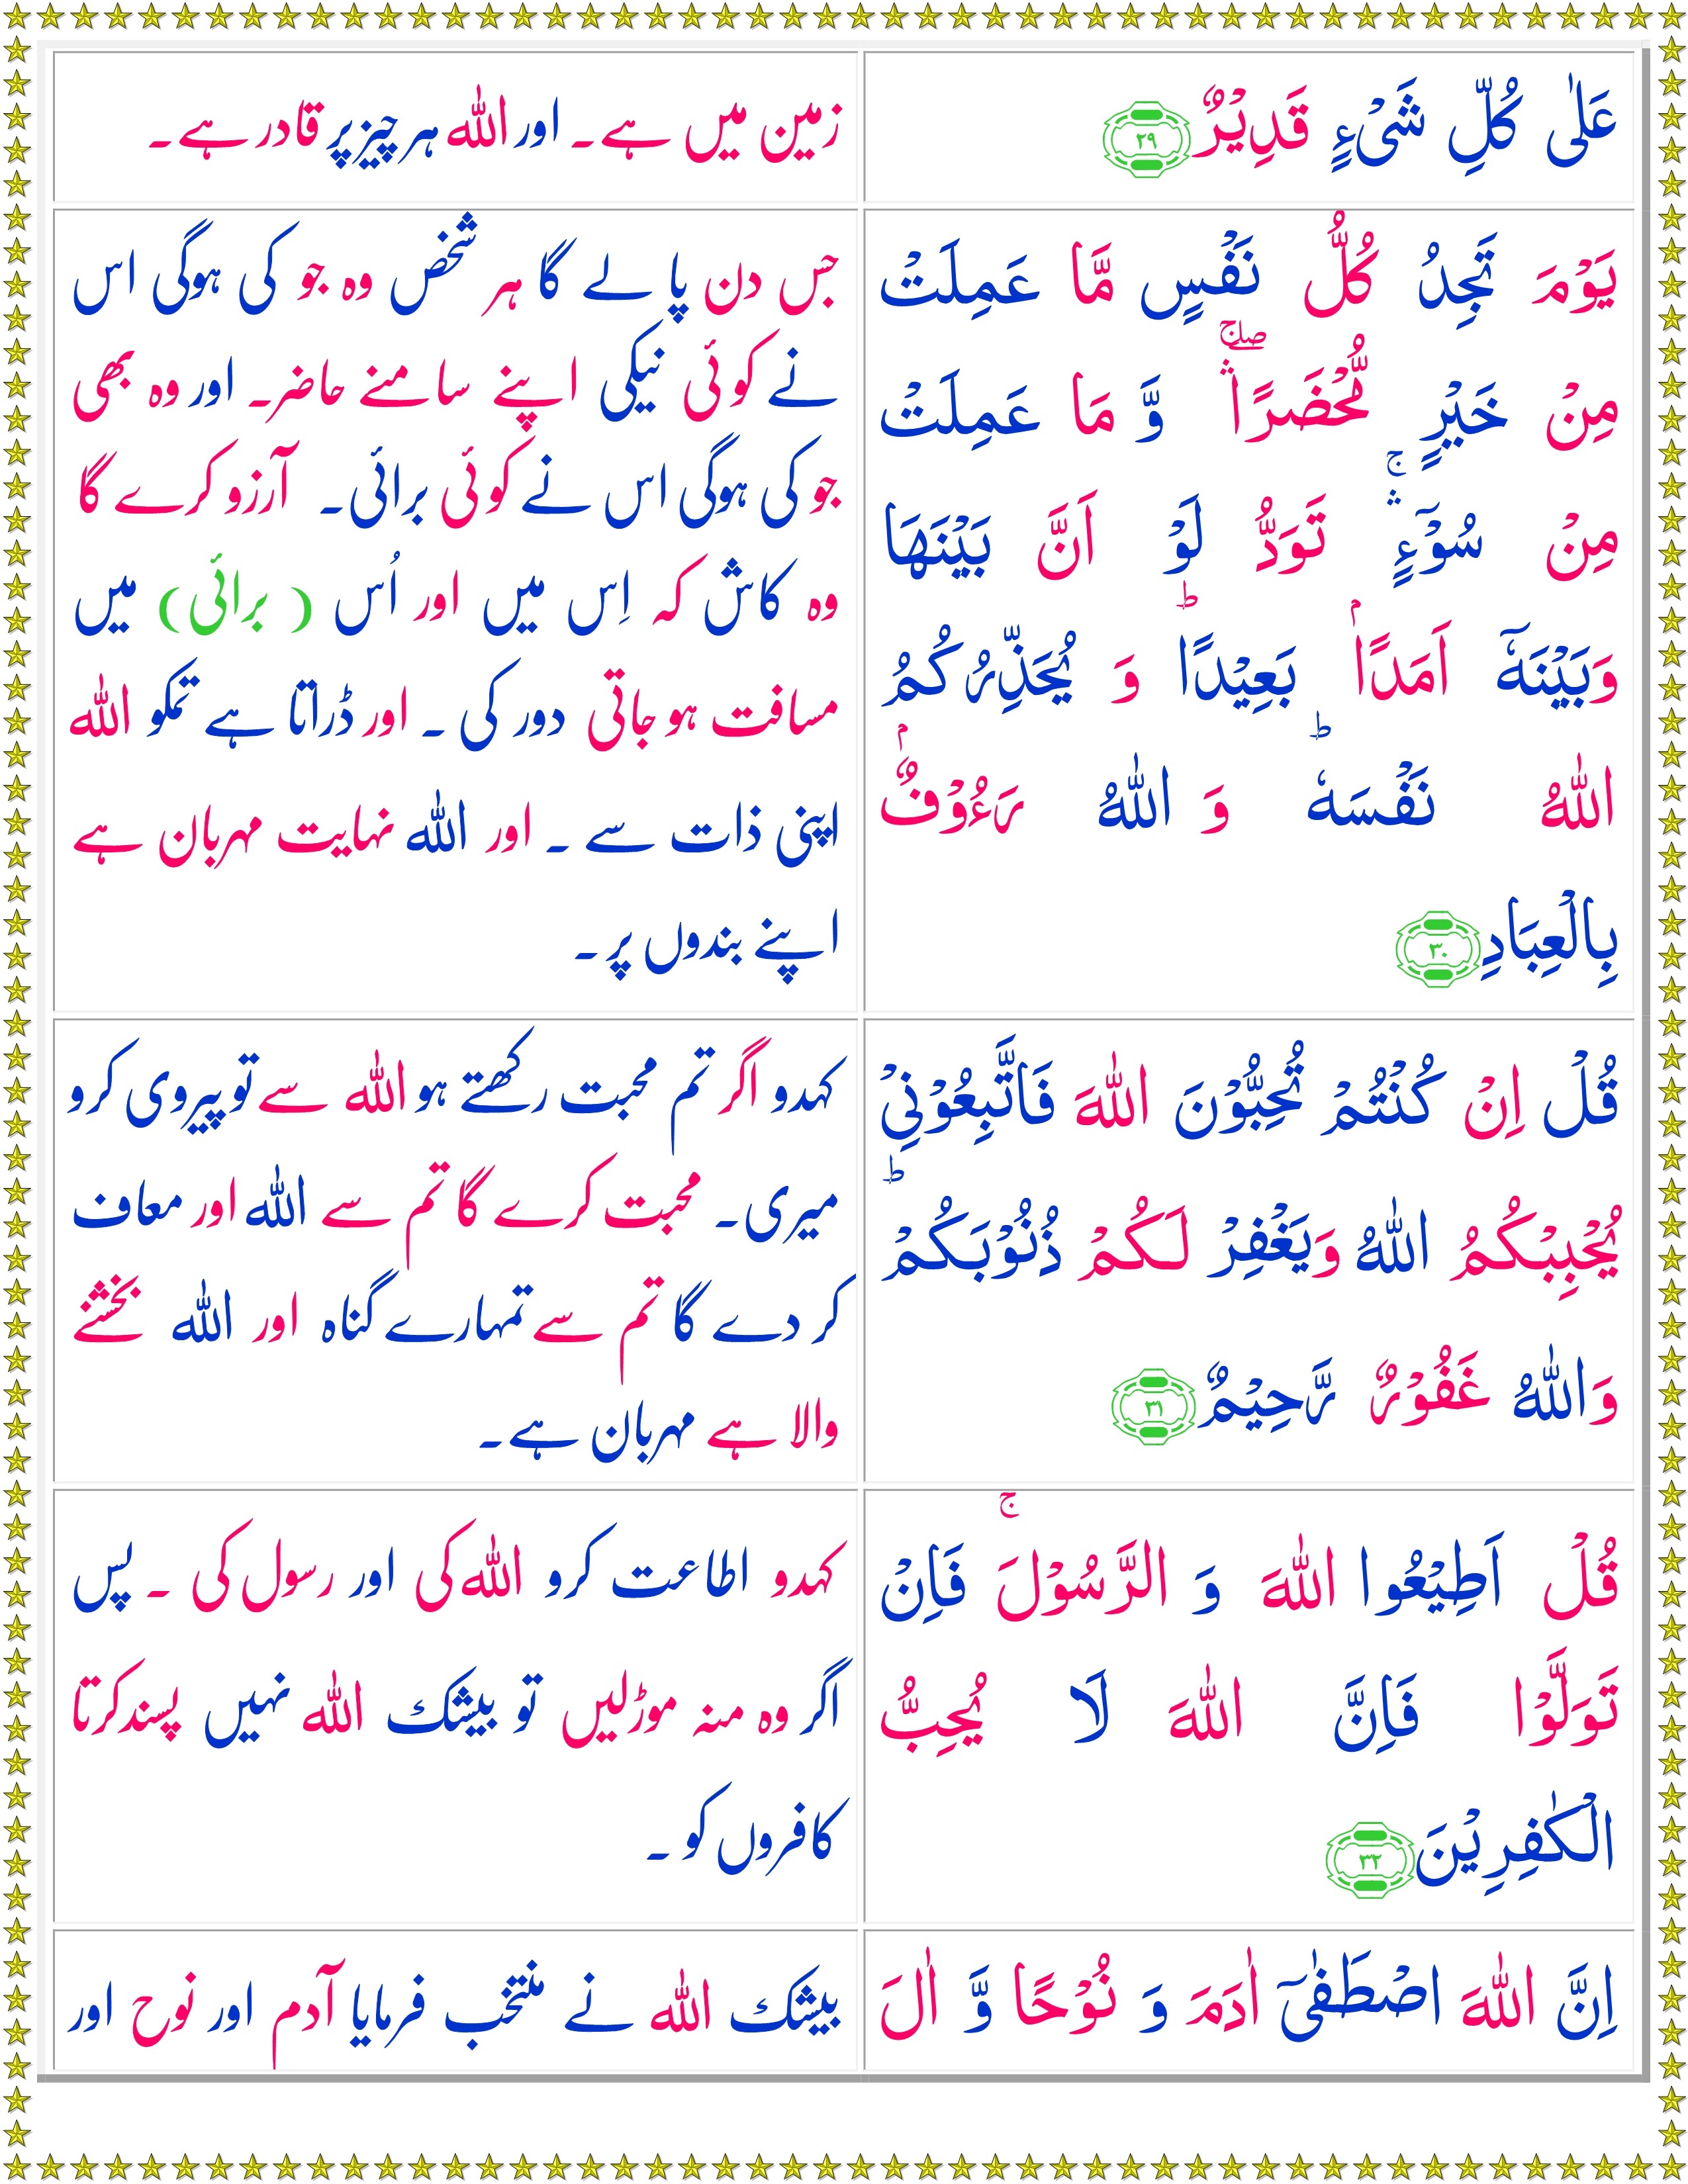 عَلٰى كُلِّ شَىْءٍ قَدِيْرٌ ﴿۲۹﴾
زمین میں ہے۔ اور اللہ ہر چیز پر قادر ہے۔
يَوْمَ تَجِدُ كُلُّ نَفْسٍ مَّا عَمِلَتْ
مِنْ خَيْرٍ مُّحْضَرًا ۛۖۚ وَّ مَا عَمِلَتْ
مِنْ سُوْٓءٍ ۛۚ تَوَدُّ لَوْ اَنَّ بَيْنَهَا
وَبَيْنَهٗۤ اَمَدًاۢ بَعِيْدًا ؕ وَ يُحَذِّرُكُمُ
اللّٰهُ نَفْسَهٗ ؕ وَ اللّٰهُ رَءُوْفٌۢ
بِالْعِبَادِ ﴿۳۰﴾
جس دن پا لے گا ہر شخص وہ جو کی ہوگی اس
نے کوئی نیکی اپنے سامنے حاضر۔ اور وہ بھی
جو کی ہوگی اس نے کوئی برائی۔ آرزو کرے گا
وہ کاش کہ اِس میں اور اُس ( برائی) میں
مسافت ہو جاتی دور کی ۔ اور ڈراتا ہے تمکو اللہ
اپنی ذات سے ۔ اور اللہ نہایت مہربان ہے
اپنے بندوں پر۔
قُلْ اِنْ كُنْتُمْ تُحِبُّوْنَ اللّٰهَ فَاتَّبِعُوْنِىْ
يُحْبِبْكُمُ اللّٰهُ وَيَغْفِرْ لَكُمْ ذُنُوْبَكُمْ ؕ
وَاللّٰهُ غَفُوْرٌ رَّحِيْمٌ ﴿۳۱﴾
کہدو اگر تم محبت رکھتے ہو اللہ سے تو پیروی کرو
میری۔ محبت کرے گا تم سے اللہ اور معاف
کر دے گا تم سے تمہارے گناہ اور اللہ بخشنے
والا ہے مہربان ہے۔
قُلْ اَطِيْعُوا اللّٰهَ وَ الرَّسُوْلَ ۚ فَاِنْ
تَوَلَّوْا فَاِنَّ اللّٰهَ لَا يُحِبُّ
الْكٰفِرِيْنَ ﴿۳۲﴾
کہدو اطاعت کرو اللہ کی اور رسول کی ۔ پس
اگر وہ منہ موڑ لیں تو بیشک اللہ نہیں پسند کرتا
کافروں کو ۔
اِنَّ اللّٰهَ اصْطَفٰىۤ اٰدَمَ وَ نُوْحًا وَّ اٰلَ
بیشک اللہ نے منتخب فرمایا آدم اور نوح اور